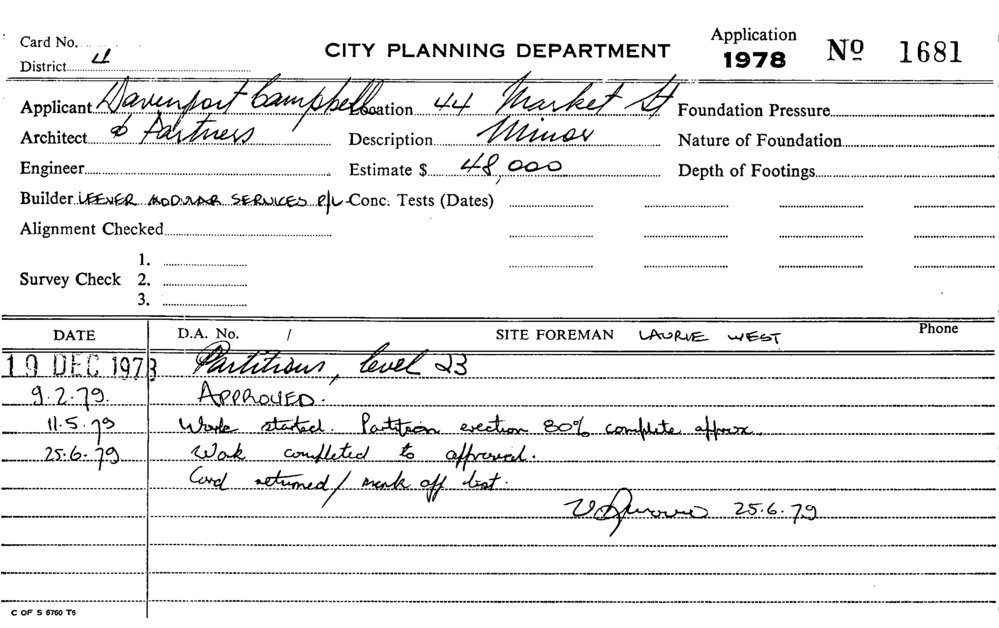 Card No.
District 4
CITY PLANNING DEPARTMENT
Application 1978 Nº 1681
Applicant Davenport Campbell Location 44 Market St Foundation Pressure
Architect & Partners Description Minor Nature of Foundation
Engineer Estimate $ 48,000 Depth of Footings
Builder MODULAR SERVICES P/L Conc. Tests (Dates)
Alignment Checked
Survey Check 1.
2.
3.
DATE D.A. No. / SITE FOREMAN LAURIE WEST Phone
19 DEC 1978 Partitions, level 23
9.2.79. APPROVED.
11.5.79 Work started. Partition erection 80% complete approx.
25.6.79 Work completed to approval.
Card returned / mark off list.
25.6.79
C OF S 6760 T5